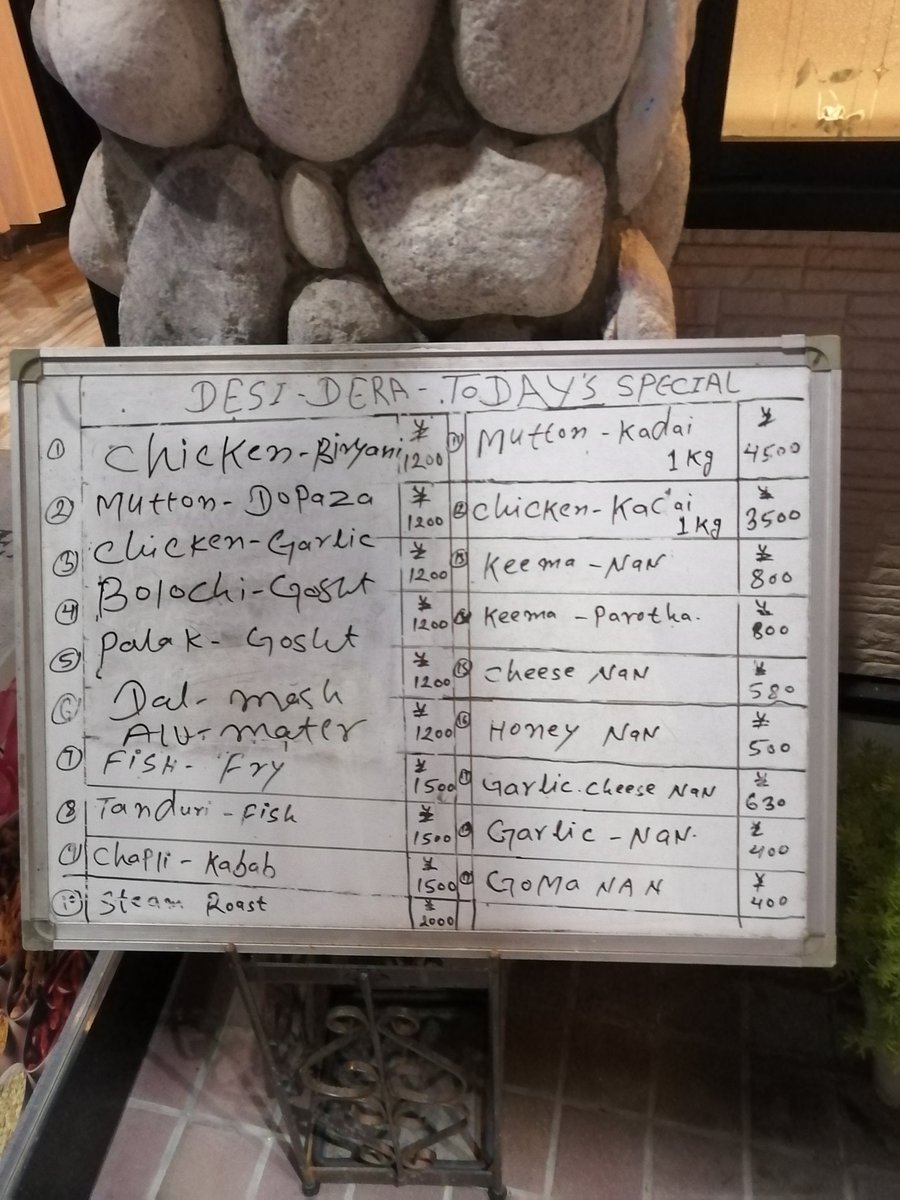 DESI-DERA-TODAY'S SPECIAL
① Chicken-Biryani ¥ 1200
② Mutton-Dopaza ¥ 1200
③ Chicken-Garlic ¥ 1200
④ Bolochi-Gosht ¥ 1200
⑤ Palak-Gosht ¥ 1200
⑥ Dal-mash ¥ 1200
Alu-mater
⑦ Fish-Fry ¥ 1500
⑧ Tanduri-Fish ¥ 1500
⑨ Chapli-Kabab ¥ 1500
⑩ Steam Roast ¥ 2000
⑪ Mutton-Kadai ¥
1 Kg 4500
⑫ Chicken-Kadai ¥
1 Kg 3500
⑬ Keema-NaN ¥ 800
⑭ Keema-Parotha. ¥ 800
⑮ Cheese NaN ¥ 580
⑯ Honey NaN ¥ 500
⑰ Garlic.cheese NaN ¥ 630
⑱ Garlic-NaN. ¥ 400
⑲ GOMA NAN ¥ 400